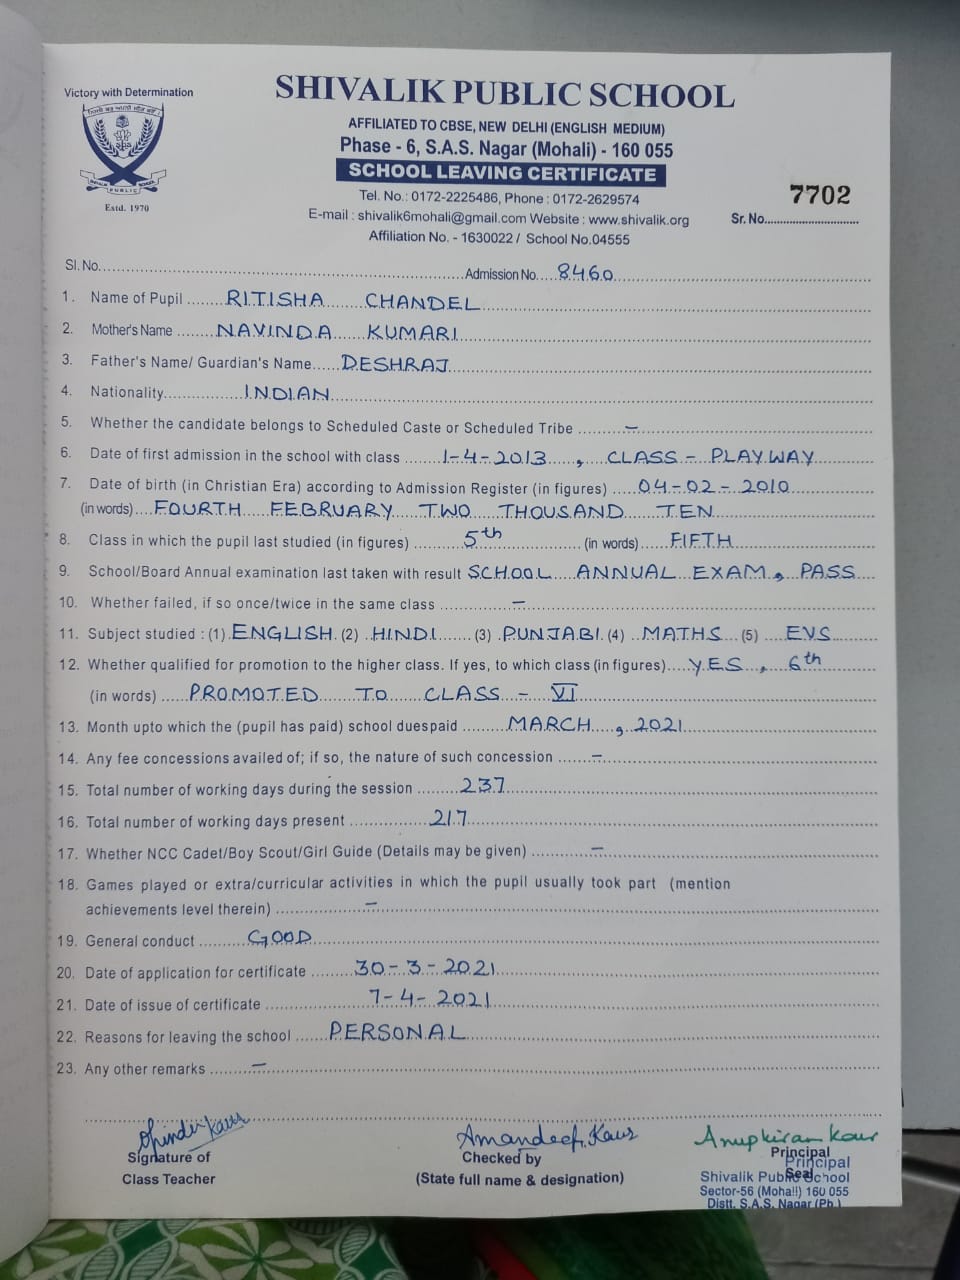 Victory with Determination
SHIVALIK PUBLIC SCHOOL
AFFILIATED TO CBSE, NEW DELHI (ENGLISH MEDIUM)
Phase - 6, S.A.S. Nagar (Mohali) - 160 055
SCHOOL LEAVING CERTIFICATE
Tel. No.: 0172-2225486, Phone : 0172-2629574
E-mail : shivalik6mohali@gmail.com Website : www.shivalik.org
Affiliation No. - 1630022 / School No.04555
SHIVALIK PUBLIC SCHOOL
Estd. 1970
7702
Sr. No.
Sl. No. Admission No. 8460
1. Name of Pupil RITISHA CHANDEL
2. Mother's Name NAVINDA KUMARI
3. Father's Name/ Guardian's Name DESHRAJ
4. Nationality INDIAN
5. Whether the candidate belongs to Scheduled Caste or Scheduled Tribe –
6. Date of first admission in the school with class 1-4-2013, CLASS - PLAYWAY
7. Date of birth (in Christian Era) according to Admission Register (in figures) 04-02-2010
(in words) FOURTH FEBRUARY TWO THOUSAND TEN
8. Class in which the pupil last studied (in figures) 5th (in words) FIFTH
9. School/Board Annual examination last taken with result SCHOOL ANNUAL EXAM, PASS
10. Whether failed, if so once/twice in the same class –
11. Subject studied : (1) ENGLISH (2) HINDI (3) PUNJABI (4) MATHS (5) EVS
12. Whether qualified for promotion to the higher class. If yes, to which class (in figures) YES, 6th
(in words) PROMOTED TO CLASS - VI
13. Month upto which the (pupil has paid) school duespaid MARCH, 2021
14. Any fee concessions availed of; if so, the nature of such concession –
15. Total number of working days during the session 237
16. Total number of working days present 217
17. Whether NCC Cadet/Boy Scout/Girl Guide (Details may be given) –
18. Games played or extra/curricular activities in which the pupil usually took part (mention
achievements level therein) –
19. General conduct GOOD
20. Date of application for certificate 30-3-2021
21. Date of issue of certificate 7-4-2021
22. Reasons for leaving the school PERSONAL
23. Any other remarks –
Kaur Amandeep Kaur Anupkiran Kaur
Signature of Checked by Principal
Class Teacher (State full name & designation) Seal
Principal
Shivalik Public School
Sector-56 (Mohali) 160 055
Distt. S.A.S. Nagar (Pb.)